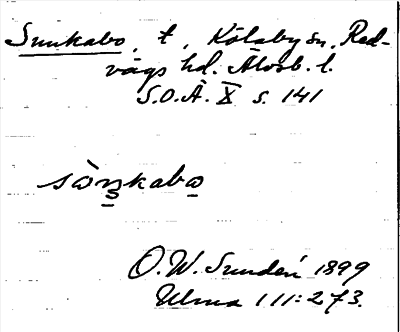 Sunkabo, t, Kölaby sn, Red-
vägs hd. Älvsb. l.
S.O.Ä. X s. 141
sàŋkabo
O.W. Sundén 1899
Ulma 111:273.